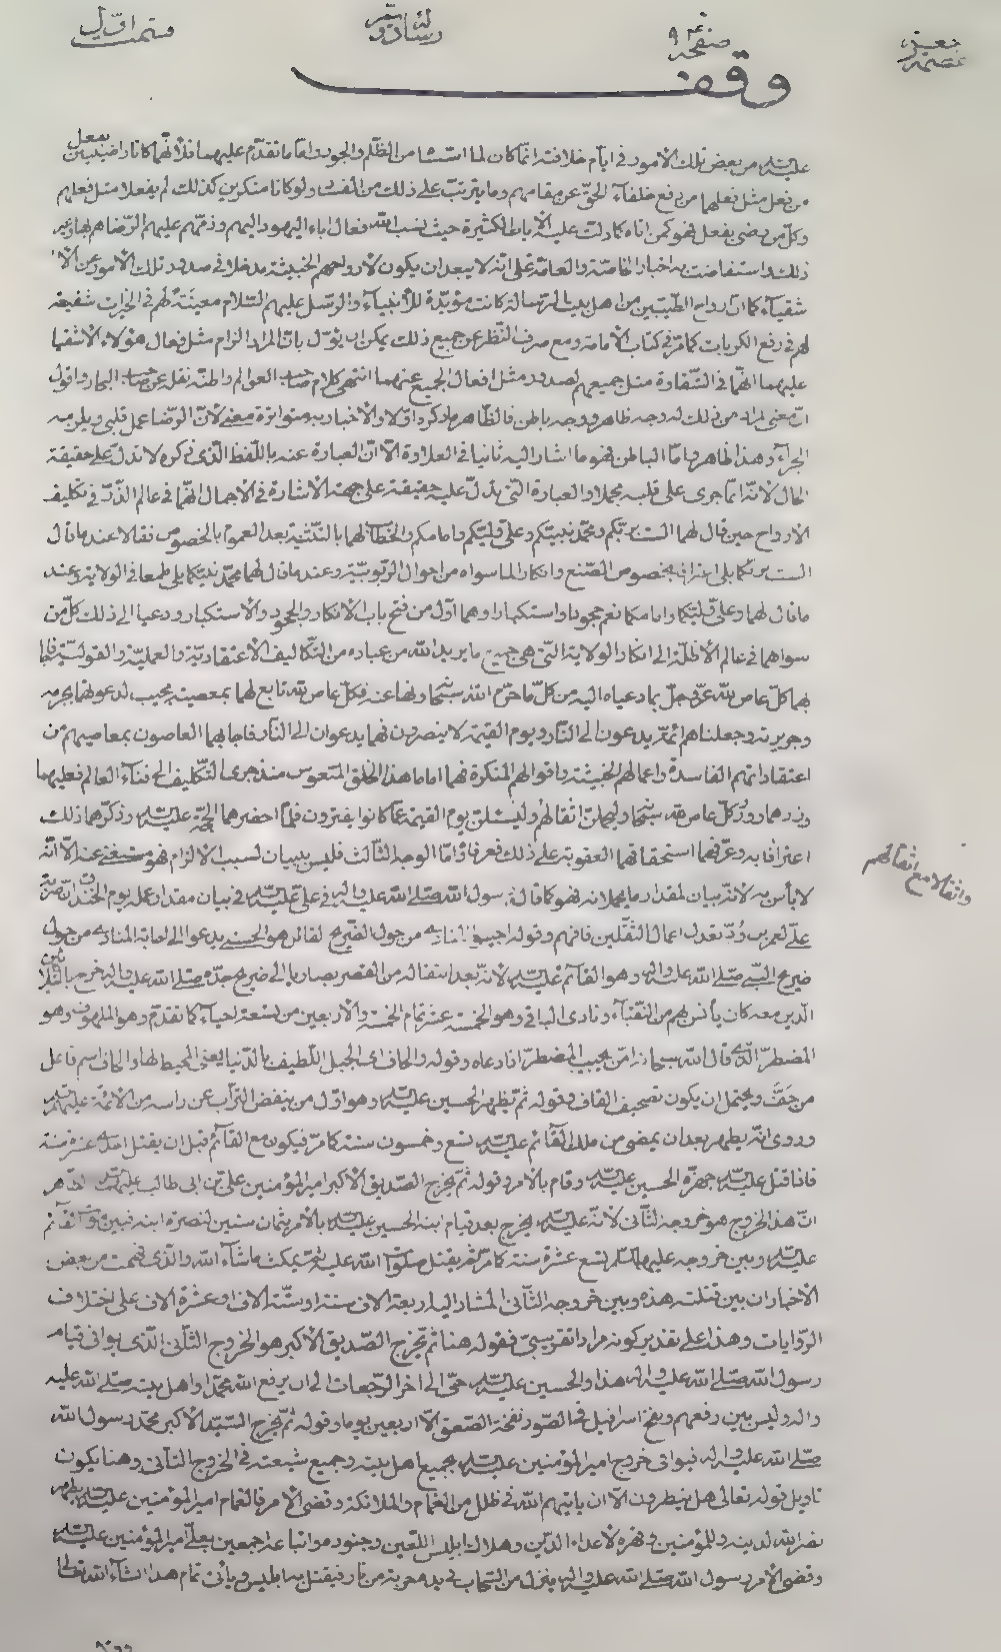 صفحه ٩٤
وقف
عليه السلام من بعض تلك الامور في ايام خلافته انما كان لما استشا من الظلم والجور اما ما تقدم عليهما فلانهما كانا راضيين بفعل
من فعل مثل فعلهما من دفع خلفاء الحق عن مقامهم وما يترتب على ذلك من المفسد ولو كانا منكرين كذلك لم يفعلا مثل فعلهم
وكل من رضي بفعل فهو كمن اتاه كما دلت عليه الايات الكثيرة حيث نسب الله فعال اباء اليهود اليهم وذمهم عليهم الرضاهم بها وغير
ذلك واستفاضت به اخبار الخاصة والعامة على انه لا يبعد ان يكون لارواحهم الخبيثة مدخلا في صدور تلك الامور عن الا
شقياء كما ان ارواح الطيبين من اهل بيت الرسالة كانت مؤيدة للأنبياء والرسل عليهم السلام معينة لهم في الخيرات شفيعة
لهم في رفع الكربات كما مر في كتاب الامامة ومع صرف النظر عن جميع ذلك يمكن ان يؤل بان المراد الزام مثل فعال هؤلاء الاشقيا
عليهما انهما في الشقاوة مثل جميعهم لصدور مثل افعال الجميع عنهما انتهى كلام صاحب العوالم واظنه نقله عن صاحب البحار واقول
ان معنى المراد من ذلك له وجه ظاهر ووجه باطن فالظاهر ما ذكر اولا والاخبار به متواترة معنى لان الرضا عمل قلبي ويلزمه
الجزاء وهذا ظاهر واما الباطن فهو ما اشار اليه ثانيا في العلاوة الا ان العبارة عنه باللفظ الذي ذكره لا تدل على حقيقة
الحال لانه انما جرى على قلبه مجملا والعبارة التي تدل عليه حقيقة على جهة الاشارة في الاجمال انهما في عالم الذر في تكليف
الارواح حين قال لهما الست بربكم ومحمد نبيكم وعلي وليكم وامامكم والخطاب لهما بالتثنية بعد العموم بالخصوص فقالا عند ما قال
الست بربكما بلى اعترافا بخصوص الصنع وانكار لما سواه من احوال الربوبية وعند ما قال لهما محمد نبيكما بلى طمعا في الولاية وعند
ما قال لهما وعلي وليكما وامامكما نعم جحودا واستكبارا وهما اول من فتح باب الانكار والجحود والاستكبار ودعيا الى ذلك كل من
سواهما في عالم الأظلة الى انكار الولاية التي هي جميع ما يريد الله من عباده من التكاليف الاعتقادية والعملية والقولية فاجا
بهما كل عاص لله عز وجل بما دعياه اليه من كل ما حرم الله سبحانه ونهى عنه فكل عاص لله تابع لهما بمعصيته مجيب لدعوتهما بجرمه
وجريرته وجعلناهم ائمة يدعون الى النار ويوم القيمة لا ينصرون فهما يدعوان الى النار فاجابهما العاصون بمعاصيهم من
اعتقاداتهم الفاسدة واعمالهم الخبيثة واقوالهم المنكرة فهما اماما هذا الخلق المتعوس منذ جرى التكليف الى فناء العالم فعليهما
وزرهما ووزر كل عاص لله سبحانه وليحملن اثقالهم وليسئلن يوم القيمة عما كانوا يفترون فلما احضرهما الحجة عليه السلام وذكرهما ذلك
واثقالا مع اثقالهم
اعترافا به وعرفهما استحقاقهما العقوبة على ذلك فعرفا واما الوجه الثالث فليس ببيان لسبب الالزام فهو مستغنى عنه الا انه
لا بأس به لانه بيان لمقدار ما يحملانه فهو كما قال رسول الله صلى الله عليه واله في علي عليه السلام في بيان مقدار عمله يوم الخندق ان ضربة
علي لعمرو بن ود تعدل اعمال الثقلين فافهم وقوله اجيبوا المنادي من حول الضريح لقائل هو الحسني يدعو الى اجابة المنادي من حول
ضريح النبي صلى الله عليه واله وهو القائم عليه السلام لانه بعد انتقاله من القصر بصاريا الى ضريح جده صلى الله عليه واله خرج بالثلاثين
الذين معه كان يأنس بهم من النقباء ونادى الباقي وهو الخمسة عشر تمام الخمسة والاربعين من تسعة احياء كما تقدم وهو الملهوف وهو
المضطر الذي قال الله سبحانه امن يجيب المضطر اذا دعاه وقوله والحاف اي الجبل اللطيف بالدنيا يعني المحيط بها والحاف اسم فاعل
من حف ويحتمل ان يكون تصحيف القاف وقوله ثم يظهر الحسين عليه السلام وهو اول من ينفض التراب عن راسه من الائمة عليهم السلام
وروى انه يظهر بعد ان يمضي من ملك القائم عليه السلام تسع وخمسون سنة كما مر فيكون مع القائم قبل ان يقتل احدى عشرة سنة
فاذا قتل عليه السلام جهزه الحسين عليه السلام وقام بالامر وقوله ثم يخرج الصديق الاكبر امير المؤمنين علي بن ابي طالب عليه السلام الظاهر
ان هذا الخروج هو خروجه الثاني لانه عليه السلام يخرج بعد قيام ابنه الحسين عليه السلام بالامر بثمان سنين لنصرة ابنه فبين قتل القائم
عليه السلام وبين خروجه عليهما السلام تسع عشرة سنة كما مر ثم يقتل صلوات الله عليه ثم يمكث ما شاء الله والذي فهمت من بعض
الاخبار ان بين قتلته هذه وبين خروجه الثاني المشار اليه اربعة الاف سنة او ستة الاف او عشرة الاف على اختلاف
الروايات وهذا على تقدير كونه مرادا تقريبي فقوله هنا ثم يخرج الصديق الاكبر هو الخروج الثاني الذي يوافي قيام
رسول الله صلى الله عليه واله هذا والحسين عليه السلام حي الى اخر الرجعات الى ان يرفع الله محمدا واهل بيته صلى الله عليه
واله وليس بين رفعهم ونفخ اسرافيل في الصور نفخة الصعق الا اربعين يوما وقوله ثم يخرج السيد الاكبر محمد رسول الله
صلى الله عليه واله فيوافي خروج امير المؤمنين عليه السلام بجميع اهل بيته وجميع شيعته في الخروج الثاني وهنا يكون
تاويل قوله تعالى هل ينظرون الا ان ياتيهم الله في ظلل من الغمام والملائكة وقضي الامر فالغمام امير المؤمنين عليه السلام يظهر
نصر الله لدينه وللمؤمنين وقهره لأعداء الدين وهلاك ابليس اللعين وجنوده واتباعه اجمعين بعلي امير المؤمنين عليه السلام
وقضي الأمر رسول الله صلى الله عليه واله ينزل من السحاب في يده حربة من نار فيقتل بها ابليس ويأتي تمام هذا انشاء الله تعالى